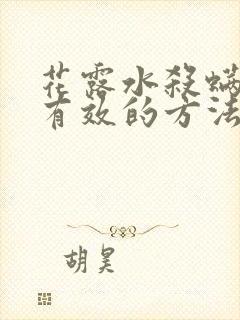 花露水杀螨
有效的方法
胡昊